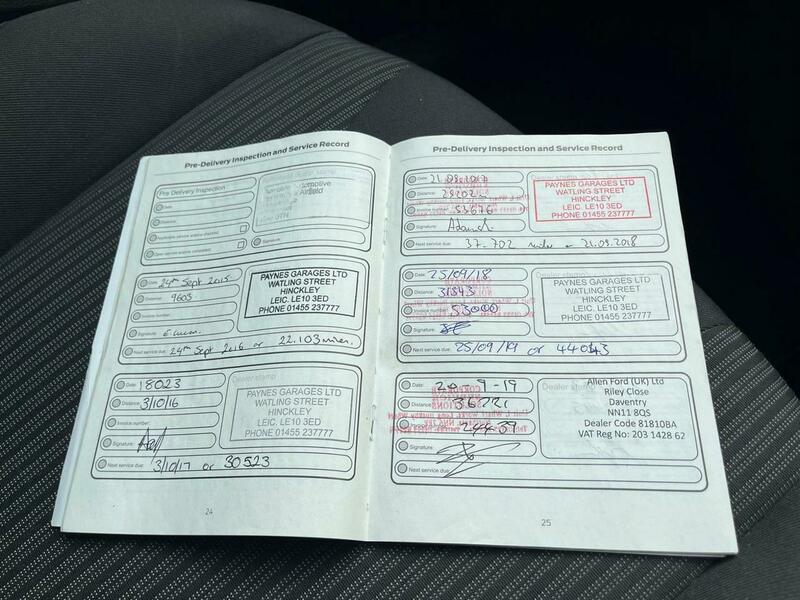 Pre-Delivery Inspection and Service Record
Pre Delivery Inspection
Date:
Distance:
Signature:
Date: 24th Sept 2015
Distance: 9603
Invoice number:
Signature:
Next service due: 24th Sept 2016 or 22.103 miles.
PAYNES GARAGES LTD
WATLING STREET
HINCKLEY
LEIC. LE10 3ED
PHONE 01455 237777
Date: 18023
Distance: 3/10/16
Invoice number:
Signature:
Next service due: 3/10/17 or 30523
Dealer stamp
PAYNES GARAGES LTD
WATLING STREET
HINCKLEY
LEIC. LE10 3ED
PHONE 01455 237777
24
Pre-Delivery Inspection and Service Record
Date:
Distance:
Invoice number:
Signature:
Next service due: 37-702 miles 21.09.2018
PAYNES GARAGES LTD
WATLING STREET
HINCKLEY
LEIC. LE10 3ED
PHONE 01455 237777
Date: 25/09/18
Distance:
Invoice number:
Signature:
Next service due: 25/09/19 or
PAYNES GARAGES LTD
WATLING STREET
HINCKLEY
LEIC. LE10 3ED
PHONE 01455 237777
Date: 20-9-19
Distance: 36221
24439
Signature:
Next service due:
Dealer stamp
Allen Ford (UK) Ltd
Riley Close
Daventry
NN11 8QS
Dealer Code 81810BA
VAT Reg No: 203 1428 62
25